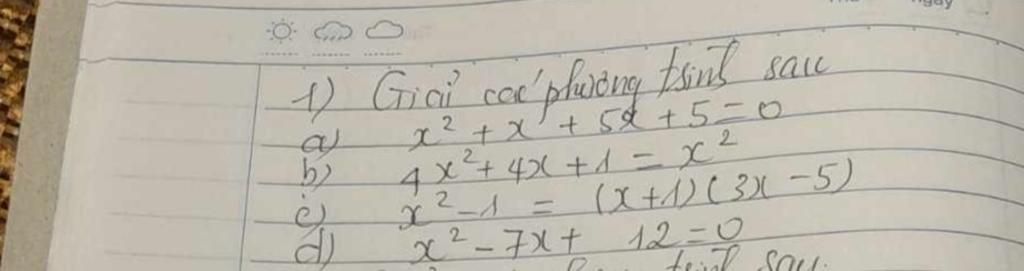 ngày
1) Giải các phương trình sau
a) x² + x + 5x + 5 = 0
b) 4x² + 4x + 1 = x²
c) x² - 1 = (x + 1)(3x - 5)
d) x² - 7x + 12 = 0
trình sau